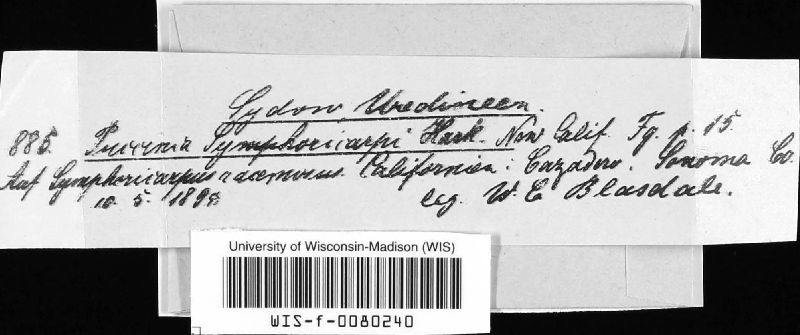 Sydow, Uredineen.
885. Puccinia Symphoricarpi Hark. New Calif. Fg. p. 15.
Auf Symphoricarpus racemosus. Californien: Cazadero. Sonoma Co.
10. 5. leg. W. C. Blasdale.
University of Wisconsin-Madison (WIS)
WIS-f-0080240